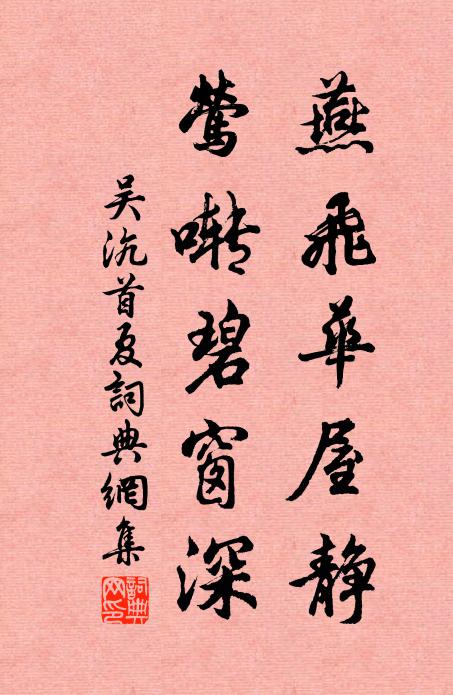 燕飛華屋静
鶯囀碧窗深
吴沉首夏詞典網集
詞典網印